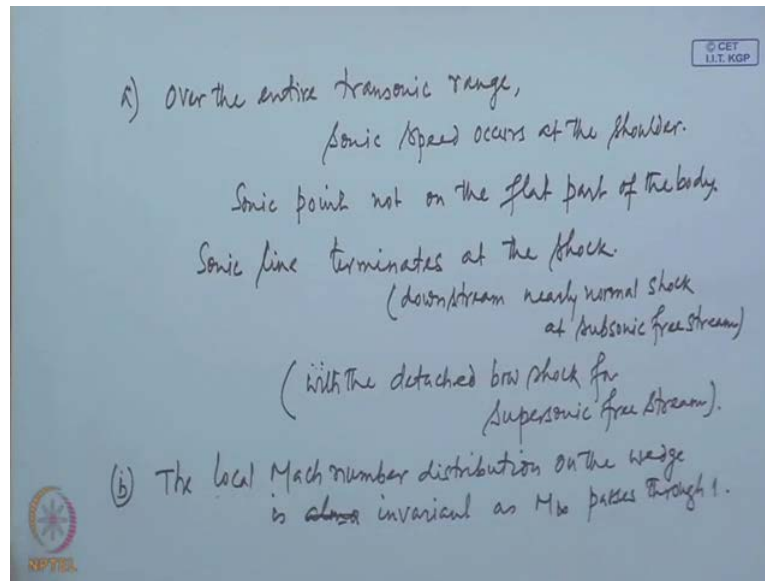 © CET
I.I.T. KGP
a) Over the entire transonic range,
sonic speed occurs at the shoulder.
Sonic point not on the flat part of the body.
Sonic line terminates at the shock.
(downstream nearly normal shock
at subsonic free stream)
(with the detached bow shock for
supersonic free stream).
(b) The local Mach number distribution on the wedge
is invariant as M∞ passes through 1.
NPTEL